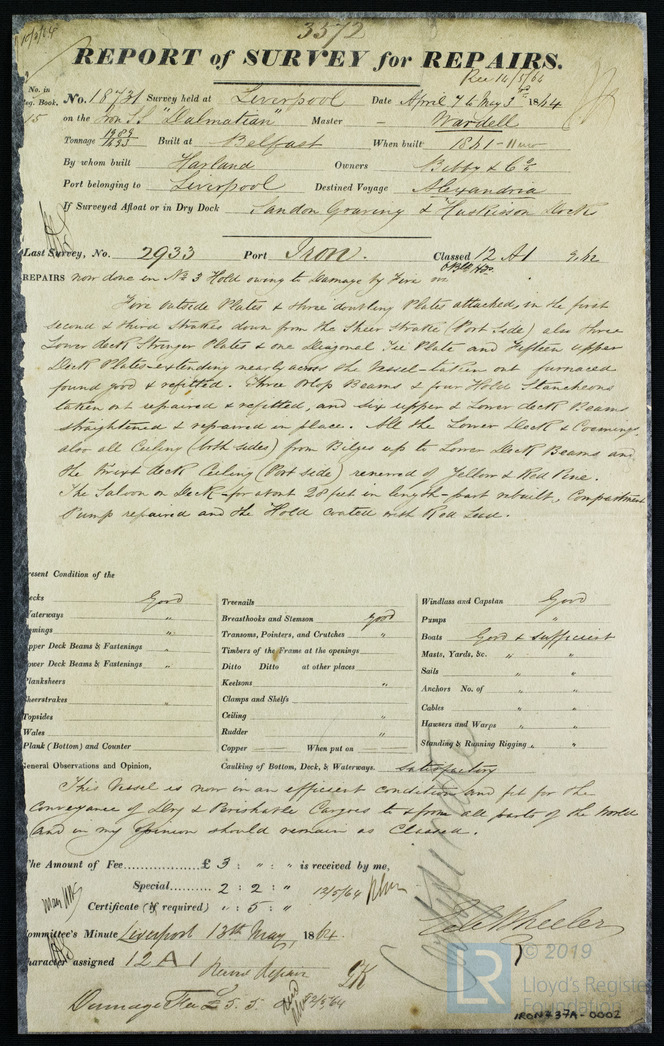 3372
REPORT of SURVEY for REPAIRS.
Rec 14/5/64
No. in
eg. Book.
15
No. 18731 Survey held at Liverpool Date April 7 to May 3rd 1864
on the Iron SS "Dalmatian" Master — Wardell
Tonnage 1989 Built at Belfast When built 1861 - 11mo
By whom built Harland Owners Bibby & Co
Port belonging to Liverpool Destined Voyage Alexandria
If Surveyed Afloat or in Dry Dock Sandon Graving & Huskisson Docks
Last Survey, No. 2933 Port Iron. Classed 12 A1
REPAIRS now done in No 3 Hold owing to Damage by Fire in
Five outside Plates & three doubling Plates attached, in the first
second & third Strakes down from the Sheer Strake (Port Side) also three
Lower deck Stringer Plates & one Diagonal Tee Plate and Fifteen upper
Deck Plates extending nearly across the Vessel - taken out furnaced
found good & refitted. Three Orlop Beams & four Hold Stancheons
taken out repaired & refitted, and six upper & Lower deck Beams
straightened & repaired in place. All the Lower Deck & Coamings,
also all Ceiling (both sides) from Bilges up to Lower Deck Beams and
the Twixt deck Ceiling (Port side) renewed of Yellow & Red Pine.
The Saloon on Deck - for about 20 feet in length - part rebuilt, Compartment
Pump repaired and the Hold coated with Red Lead.
resent Condition of the
ecks Good
Waterways "
omings "
pper Deck Beams & Fastenings "
ower Deck Beams & Fastenings "
lanksheers
heerstrakes "
Topsides
Wales
Plank (Bottom) and Counter
Treenails
Breasthooks and Stemson good
Transoms, Pointers, and Crutches "
Timbers of the Frame at the openings
Ditto Ditto at other places
Keelsons "
Clamps and Shelfs
Ceiling "
Rudder "
Copper When put on
Caulking of Bottom, Deck, & Waterways. satisfactory
Windlass and Capstan Good
Pumps "
Boats Good & sufficient
Masts, Yards, &c. " "
Sails " "
Anchors No. of " "
Cables " "
Hawsers and Warps " "
Standing & Running Rigging " "
General Observations and Opinion,
This Vessel is now in an efficient condition and fit for the
Conveyance of Dry & Perishable Cargoes to & from all parts of the World
and in my opinion should remain as Classed.
The Amount of Fee £ 3 : " : " is received by me,
Special 2 : 2 : " 12/5/64
Certificate (if required) " : 5 : "
Wheeler
ommittee's Minute Liverpool 13th May 1864.
haracter assigned 12 A 1
Damage Fee £ 5. 5.
LR
© 2019
Lloyd's Register
Foundation
IRON437A-0002